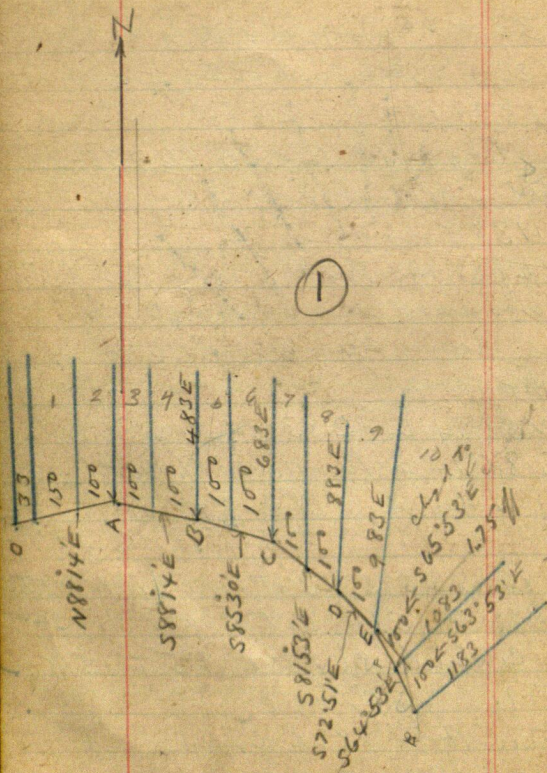 N
1
1 2 3 4 5 6 7 8 9 10
33
150
100
100
100
483E
100
100
683E
100
100
883E
100
983E
O
A
B
C
D
E
F
B
N88°14'E
S88°14'E
S85°30'E
S81°53'E
S72°51'E
S64°53'E
Chord to
100E-S65°53'E
1083
100E-S63°53'E
1183